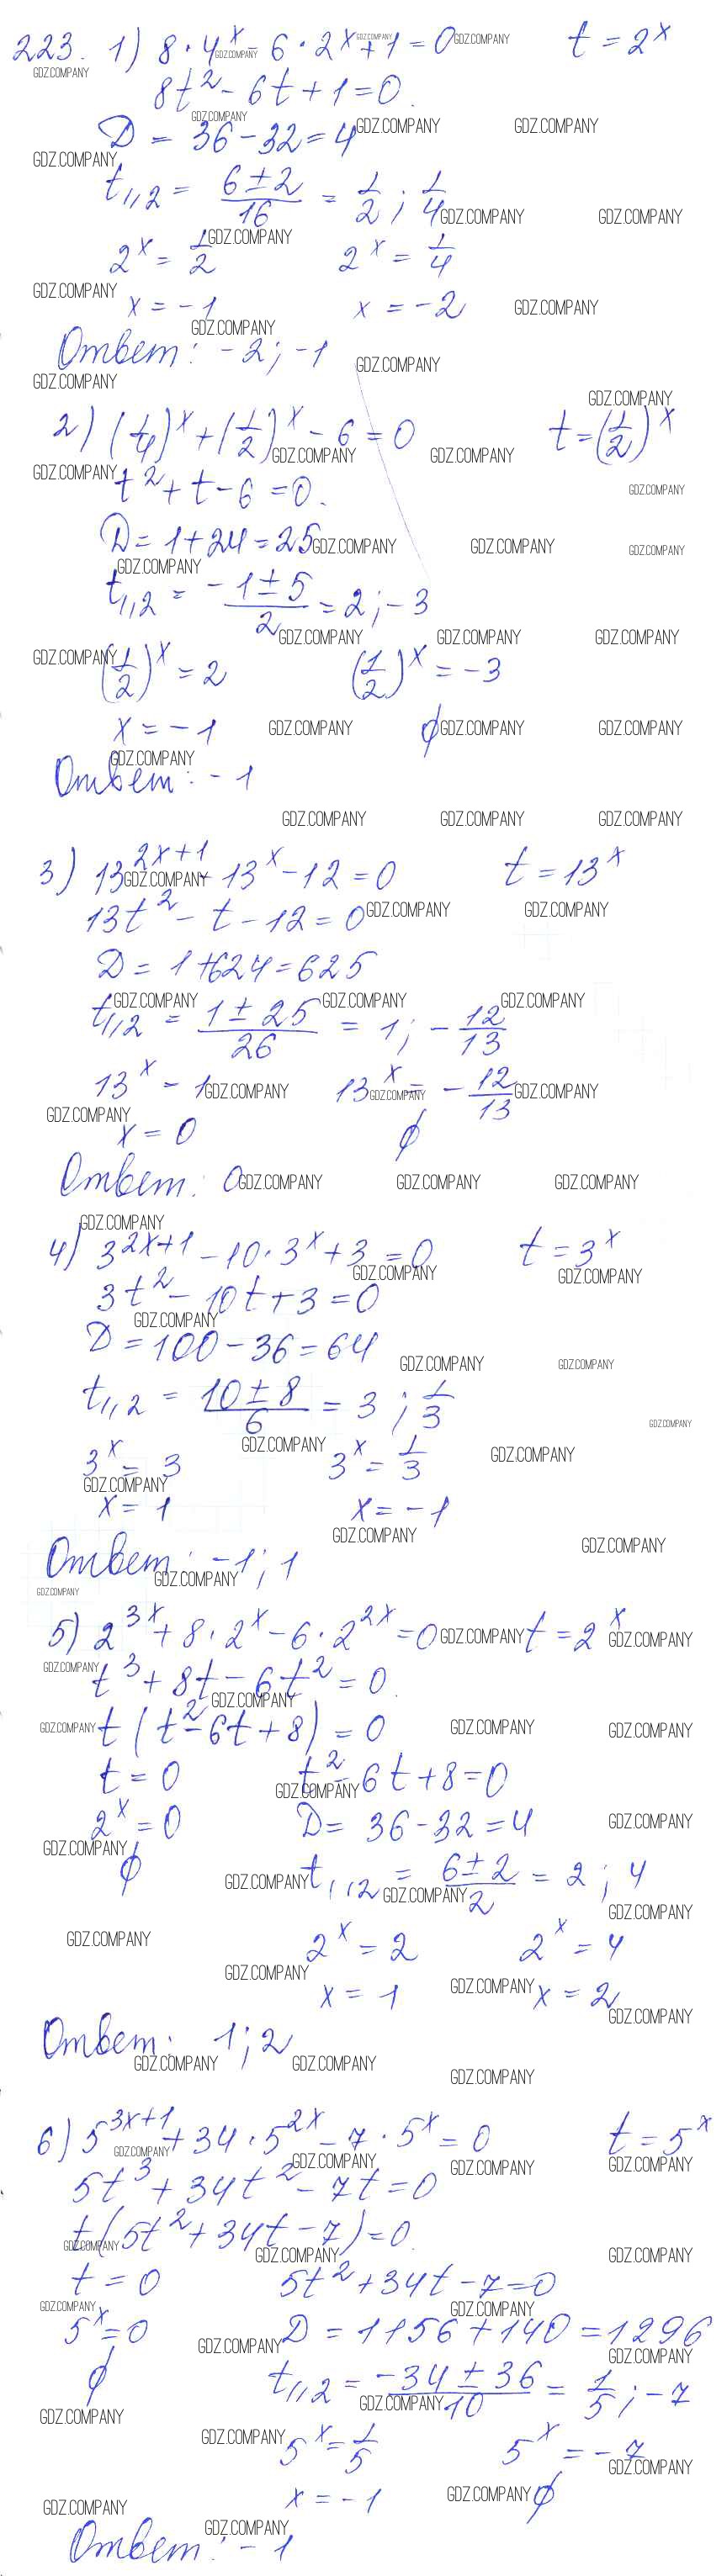 223. 1) 8 · 4^x - 6 · 2^x + 1 = 0 t = 2^x
8t^2 - 6t + 1 = 0.
D = 36 - 32 = 4
t1,2 = (6 ± 2)/16 = 1/2 ; 1/4
2^x = 1/2 2^x = 1/4
x = -1 x = -2
Ответ: -2; -1
2) (1/4)^x + (1/2)^x - 6 = 0 t = (1/2)^x
t^2 + t - 6 = 0.
D = 1 + 24 = 25
t1,2 = (-1 ± 5)/2 = 2; -3
(1/2)^x = 2 (1/2)^x = -3
x = -1 ∅
Ответ: -1
3) 13^(2x+1) - 13^x - 12 = 0 t = 13^x
13t^2 - t - 12 = 0
D = 1 + 624 = 625
t1,2 = (1 ± 25)/26 = 1; -12/13
13^x - 1 13^x = -12/13
x = 0 ∅
Ответ: 0
4) 3^(2x+1) - 10 · 3^x + 3 = 0 t = 3^x
3t^2 - 10t + 3 = 0
D = 100 - 36 = 64
t1,2 = (10 ± 8)/6 = 3 ; 1/3
3^x = 3 3^x = 1/3
x = 1 x = -1
Ответ: -1; 1
5) 2^(3x) + 8 · 2^x - 6 · 2^(2x) = 0 t = 2^x
t^3 + 8t - 6t^2 = 0.
t(t^2 - 6t + 8) = 0
t = 0 t^2 - 6t + 8 = 0
2^x = 0 D = 36 - 32 = 4
∅ t1,2 = (6 ± 2)/2 = 2 ; 4
2^x = 2 2^x = 4
x = 1 x = 2
Ответ: 1; 2
6) 5^(3x+1) + 34 · 5^(2x) - 7 · 5^x = 0 t = 5^x
5t^3 + 34t^2 - 7t = 0
t(5t^2 + 34t - 7) = 0.
t = 0 5t^2 + 34t - 7 = 0
5^x = 0 D = 1156 + 140 = 1296
∅ t1,2 = (-34 ± 36)/10 = 1/5 ; -7
5^x = 1/5 5^x = -7
x = -1 ∅
Ответ: -1
GDZ.COMPANY